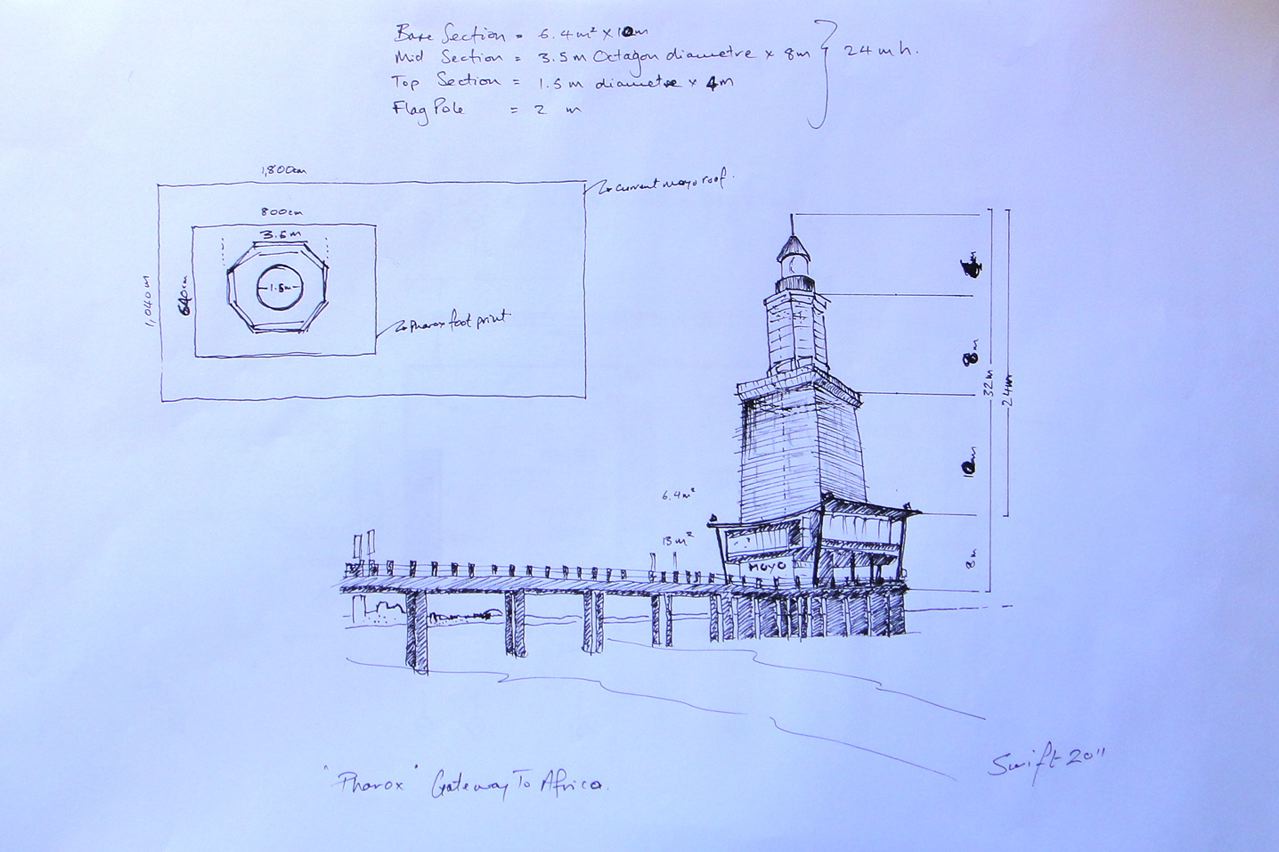 Base Section = 6.4m² x 10m
Mid Section = 3.5m Octagon diametre x 8m
Top Section = 1.5m diametre x 4m
Flag Pole = 2 m
24 m h.
1,800cm
current moyo roof.
800cm
3.6m
1.5m
640cm
1,040m
Pharox foot print
8m
32m
24m
10m
6.4m²
13m²
8m
MOYO
"Pharox" Gateway To Africa.
Swift 2011